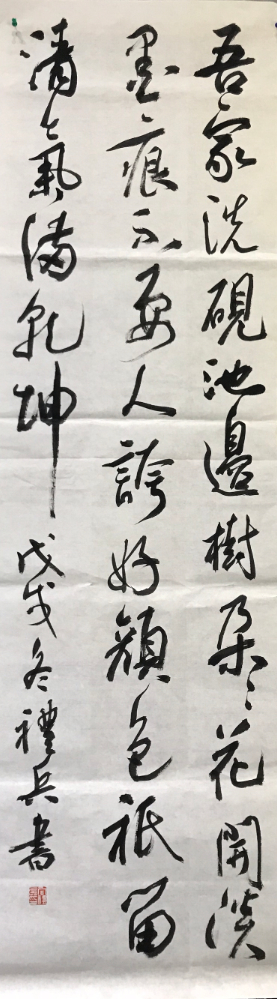 吾家洗硯池邊樹朵〻花開淡
墨痕不要人誇好顏色祗留
清氣滿乾坤 戊戌冬禮兵書